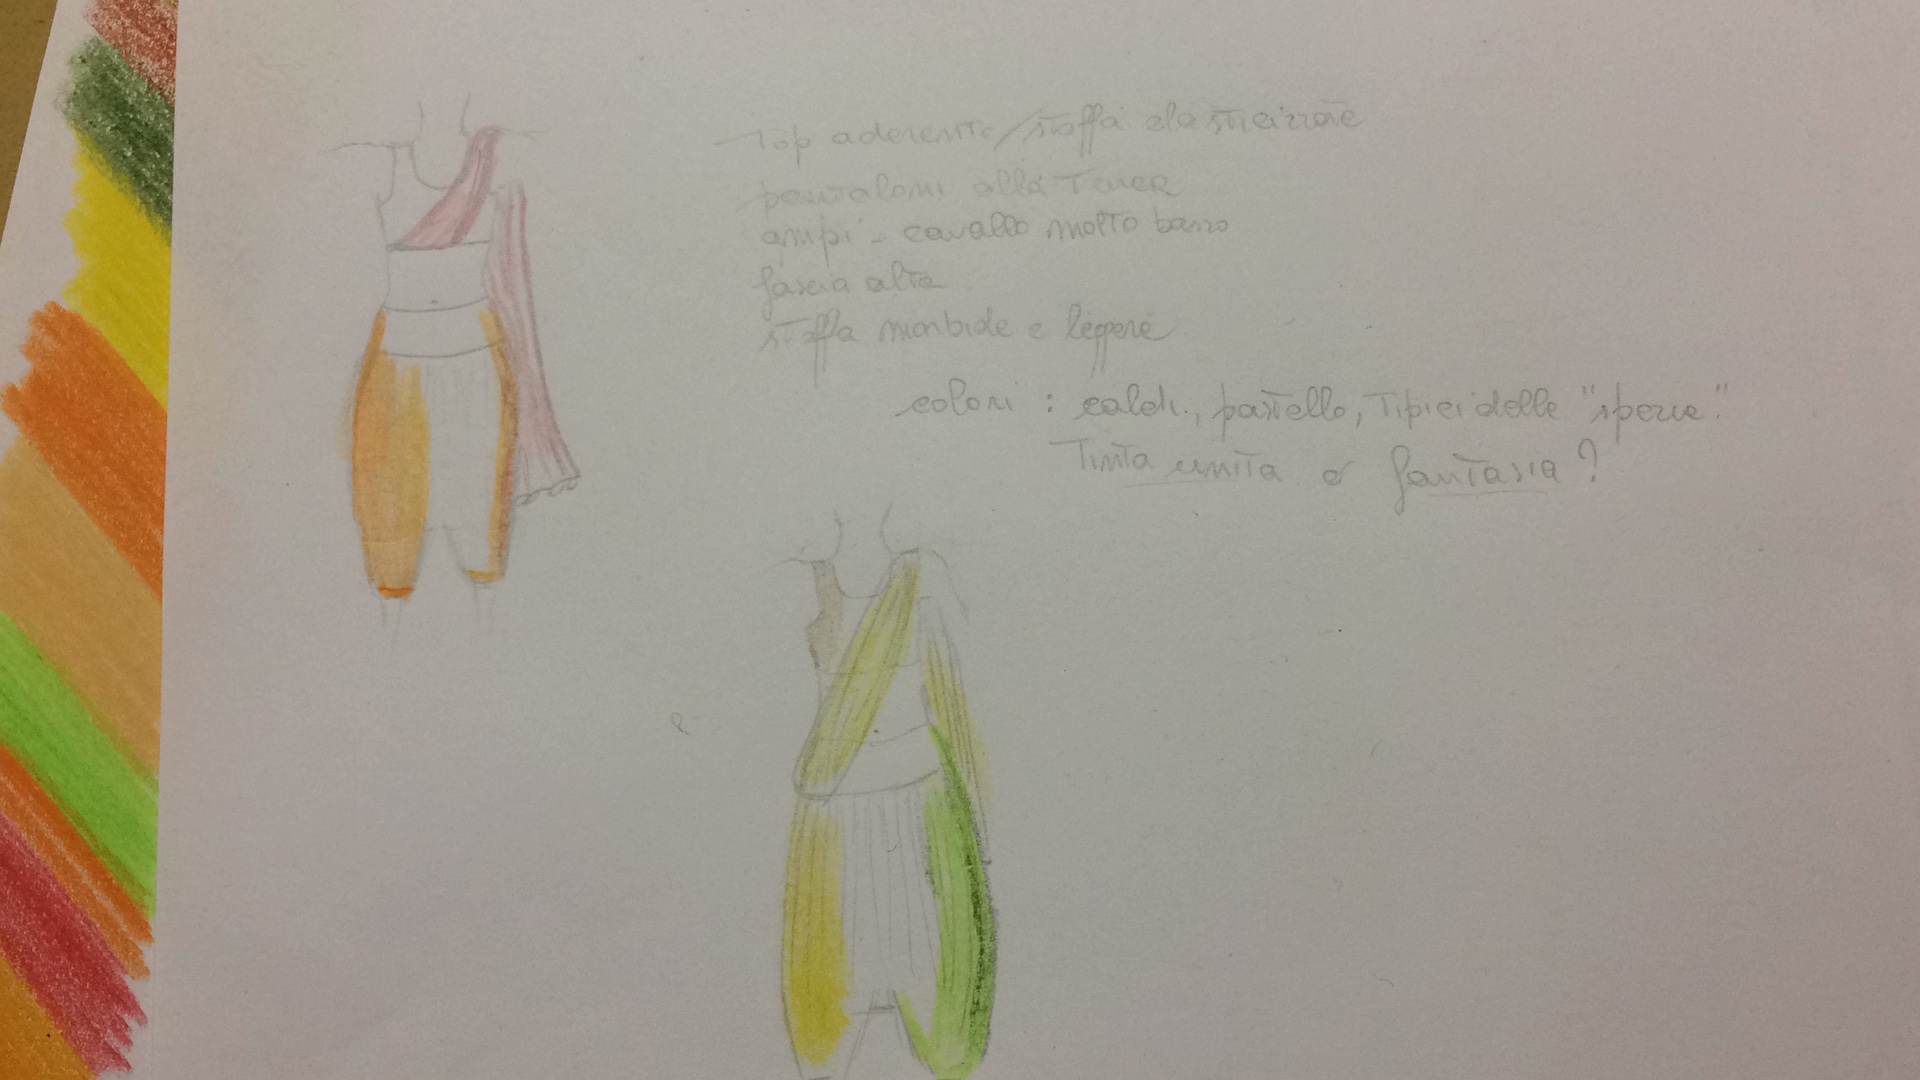 Top aderente/stoffa elasticizzate
pantaloni alla Turca
ampi - cavallo molto basso
fascia alta
stoffa morbide e leggere
colori : caldi, pastello, Tipici delle "spezie"
Tinta unita o fantasia?